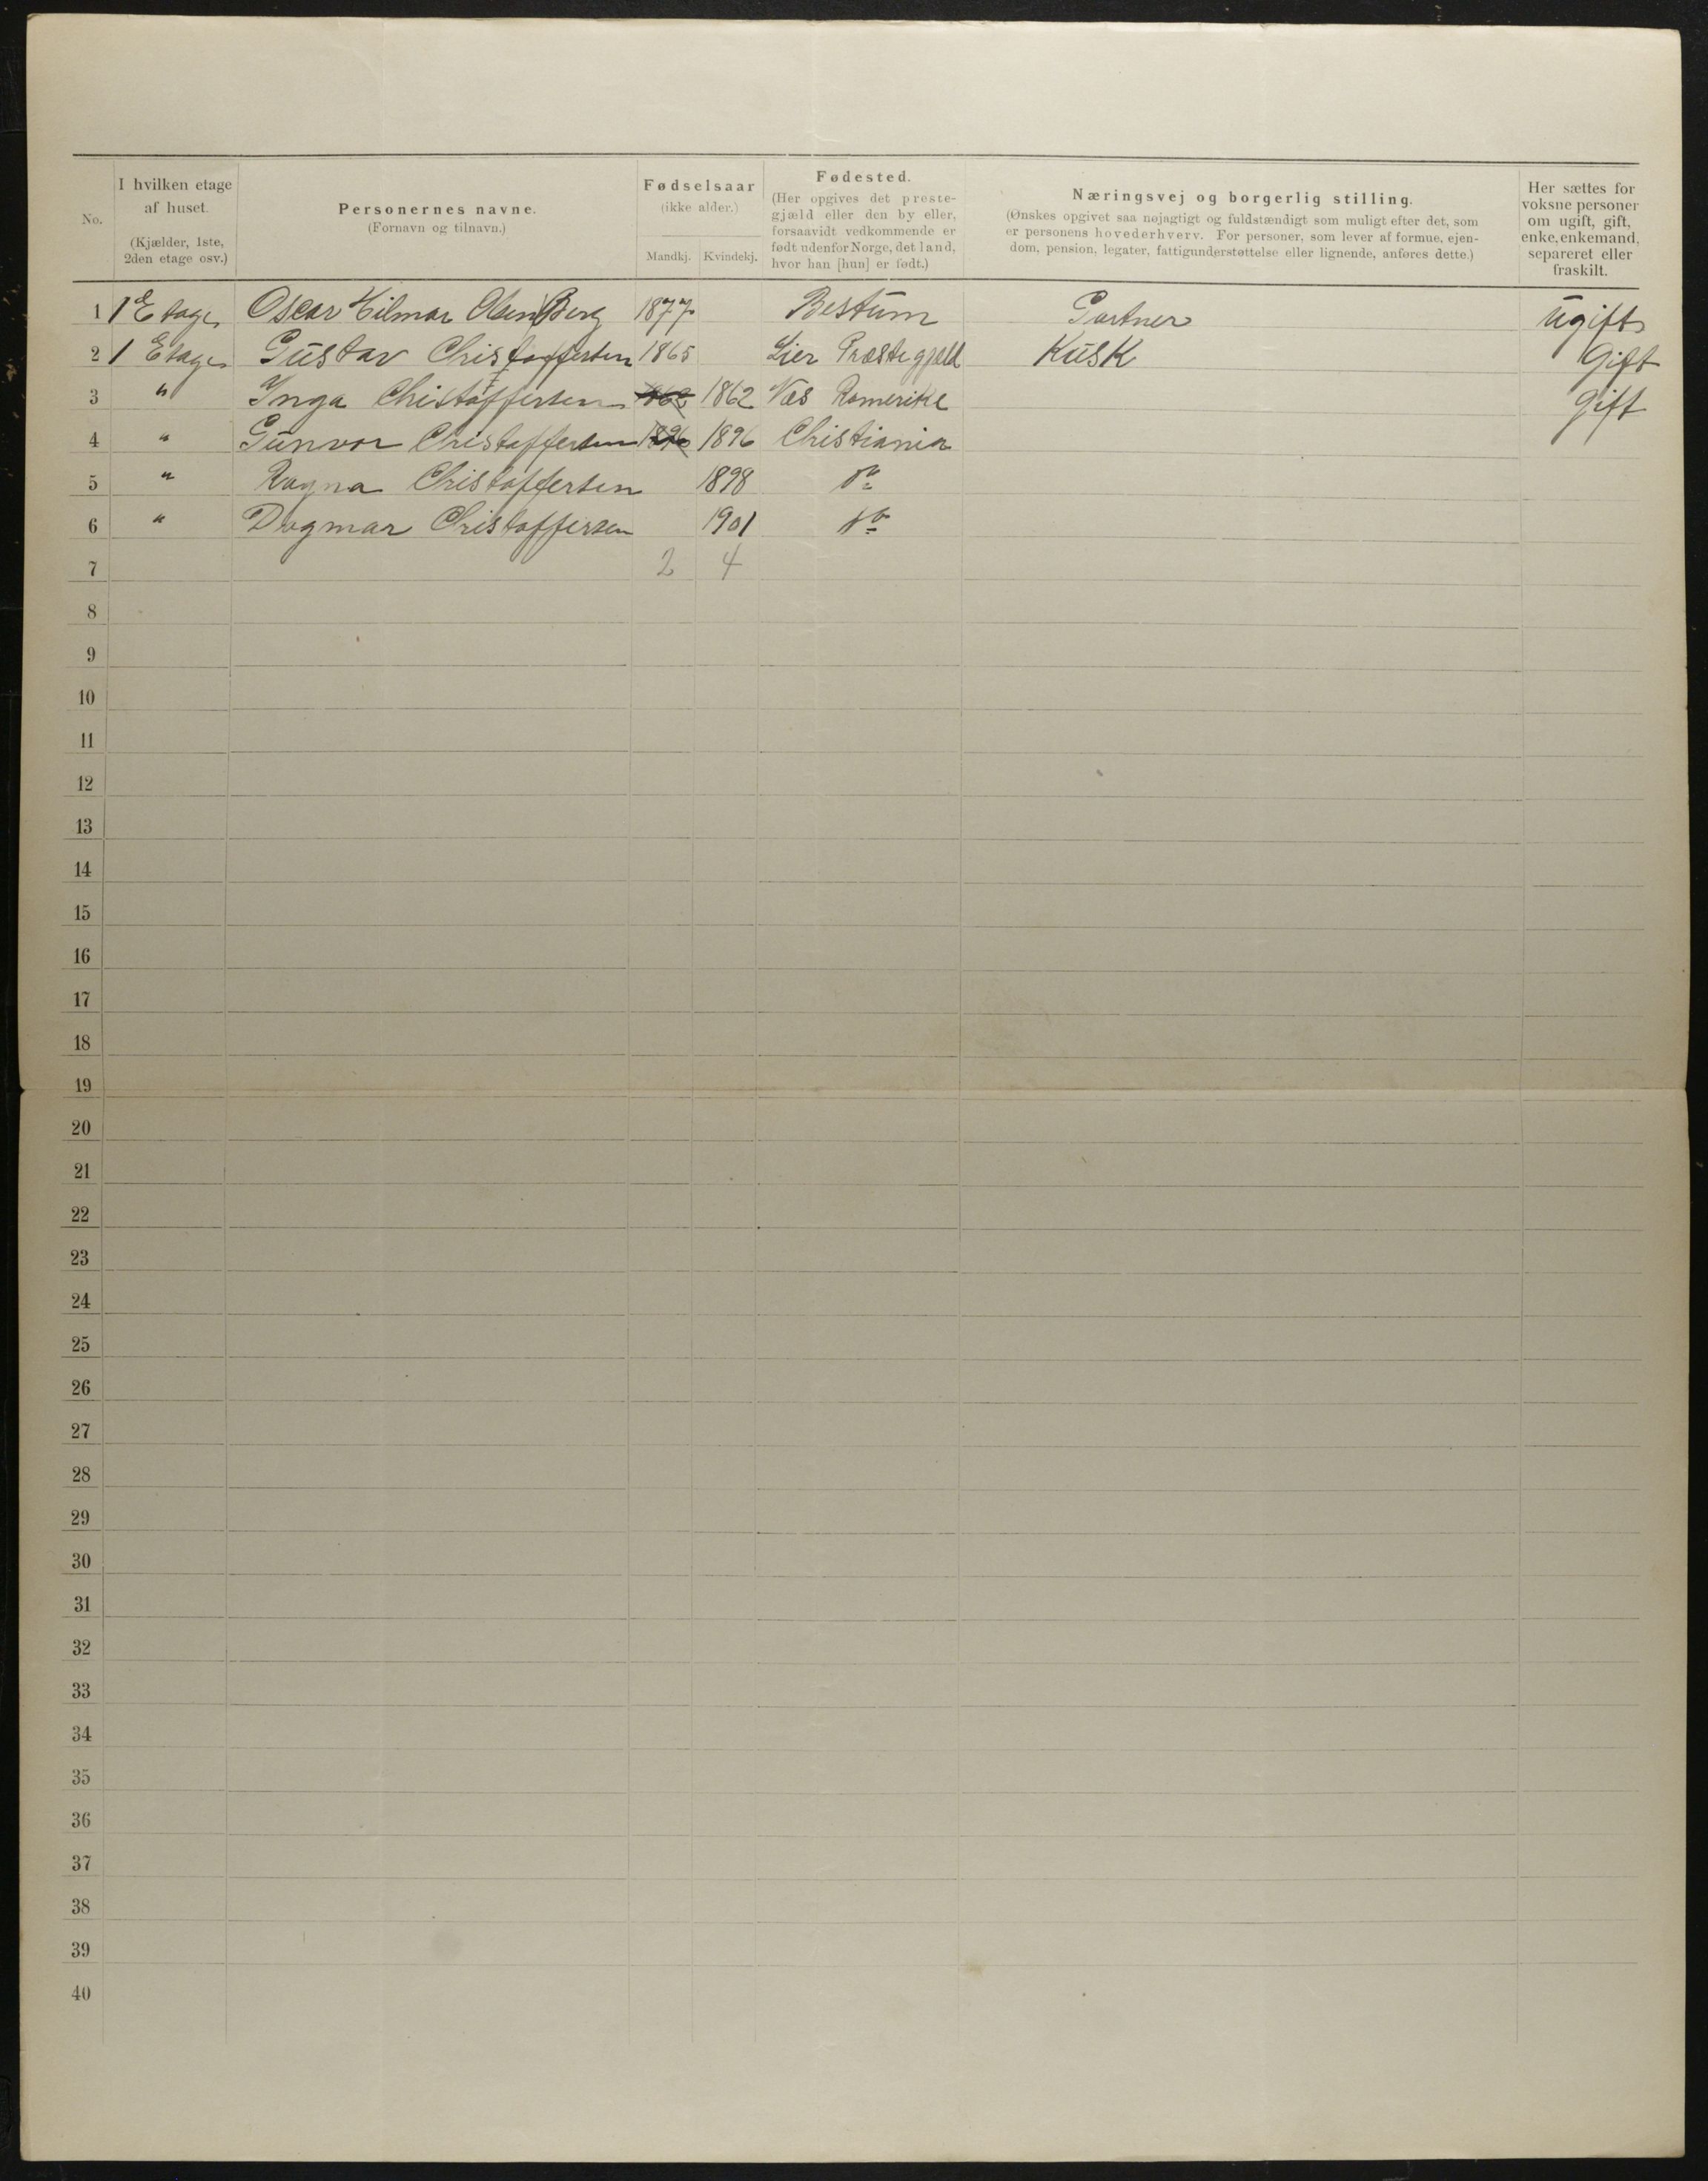 No.
I hvilken etage af huset.
(Kjælder, 1ste, 2den etage osv.)
Personernes navne.
(Fornavn og tilnavn.)
Fødselsaar
(ikke alder.)
Mandkj. Kvindekj.
Fødested.
(Her opgives det preste-
gjæld eller den by eller,
forsaavidt vedkommende er
født udenfor Norge, det land,
hvor han [hun] er født.)
Næringsvej og borgerlig stilling.
(Ønskes opgivet saa nøjagtigt og fuldstændigt som muligt efter det, som
er personens hovederhverv. For personer, som lever af formue, ejen-
dom, pension, legater, fattigunderstøttelse eller lignende, anføres dette.)
Her sættes for
voksne personer
om ugift, gift,
enke, enkemand,
separeret eller
fraskilt.
1 1 Etage Oscar Hilmar Olsen Berg 1877 Bestum Gartner ugift
2 1 Etage Gustav Christoffersen 1865 Lier Præstegjæld Kusk Gift
3 " Inga Chistoffersen 1862 Næs Romerike Gift
4 " Gunvor Christoffersen 1896 1896 Christiania
5 " Ragna Christoffersen 1898 Do
6 " Dagmar Christoffersen 1901 Do
7 2 4
8
9
10
11
12
13
14
15
16
17
18
19
20
21
22
23
24
25
26
27
28
29
30
31
32
33
34
35
36
37
38
39
40